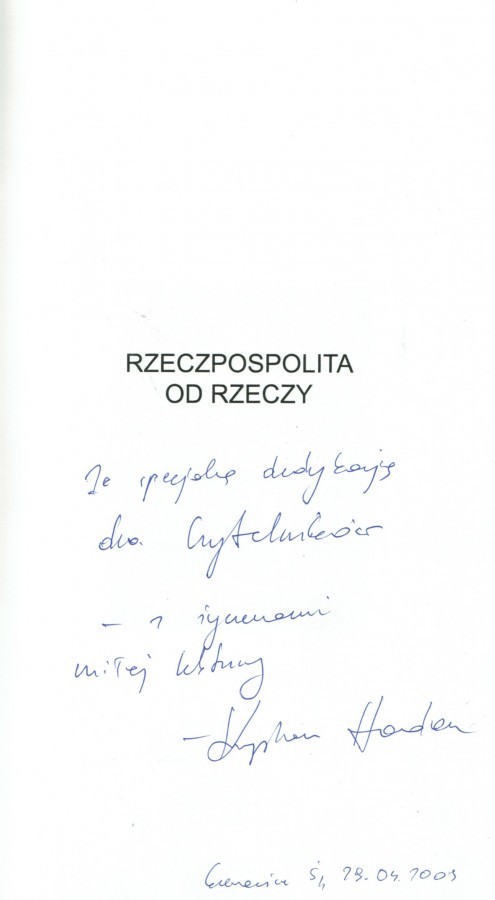 RZECZPOSPOLITA
OD RZECZY
Ze specjalną dedykacją
dla Czytelników
– z życzeniami
miłej lektury
– Krystian
Śl, 29.04.2009